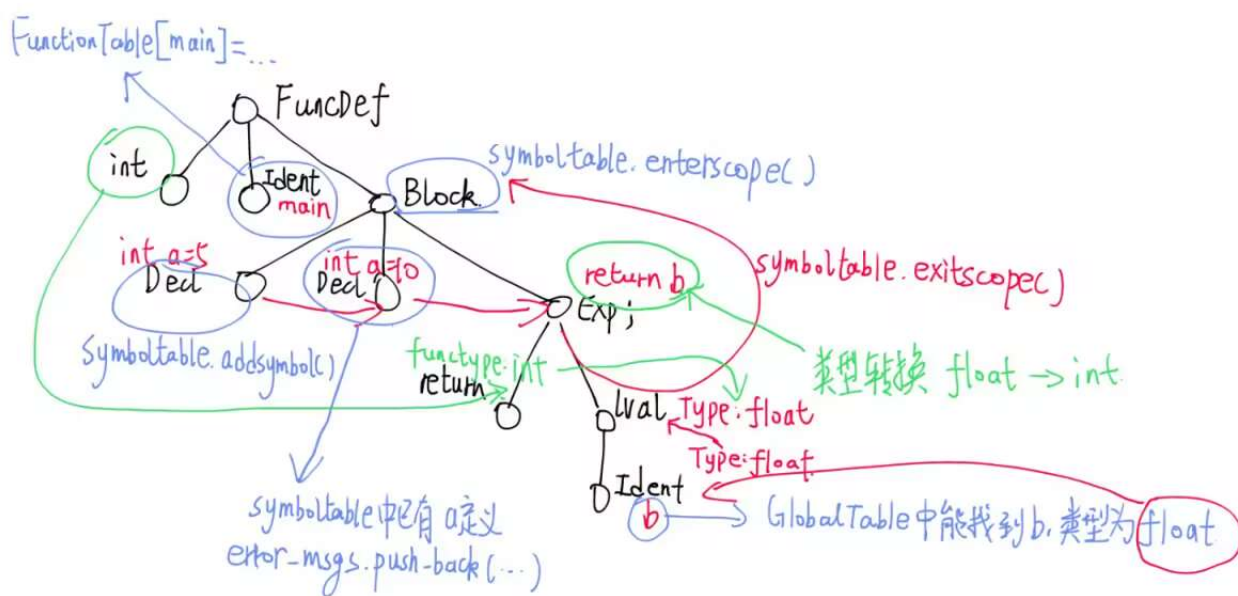 FunctionTable[main]=...
FuncDef
int
Ident
main
Block
symboltable.enterscope()
int a=5
Decl
int a=10
Decl
return b
symboltable.exitscope()
Exp;
symboltable.addsymbol()
functype:int
return
类型转换 float → int
lval
Type:float
Type:float
Ident
b
GlobalTable中能找到b,类型为float
symboltable中已有a定义
error_msgs.push-back(...)